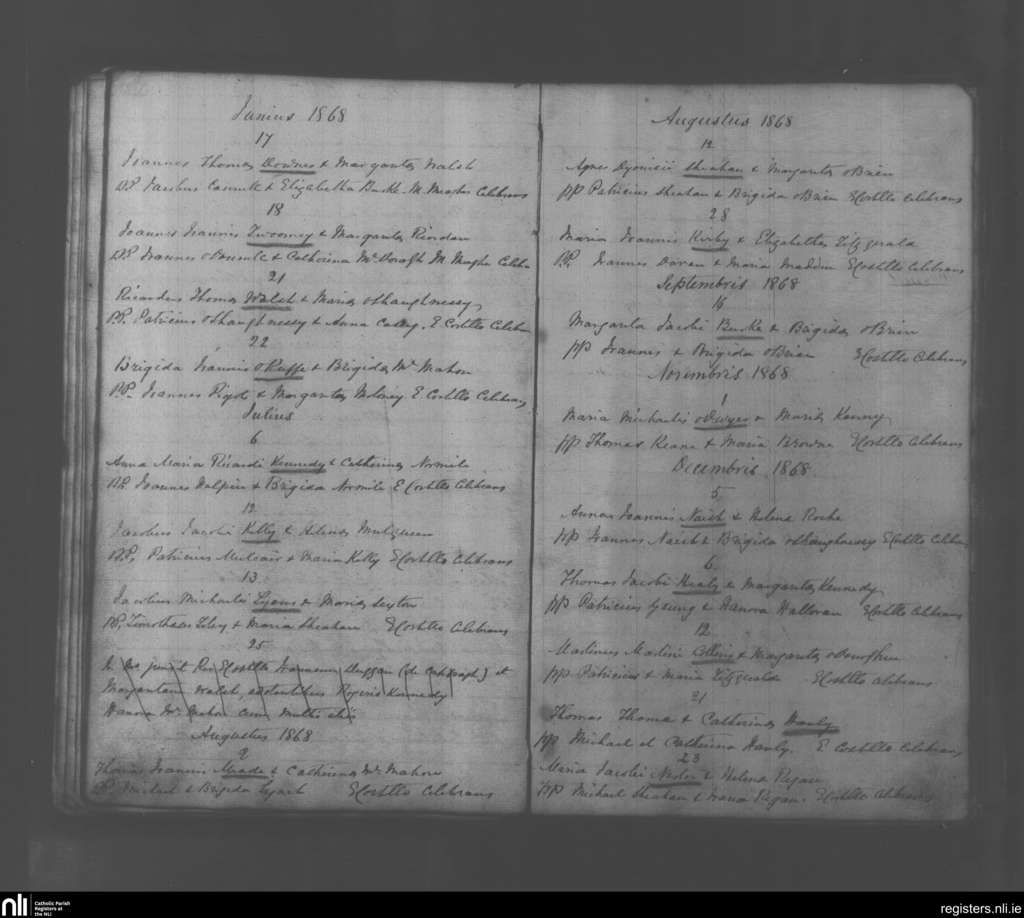 Junius 1868
17
Joannes Thomæ Downes & Margarita Walsh
PP Jacobus & Elizabetha Burke M. Meagher Celebrans
18
Joannes Joannis Twoomey & Margarita Riordan
PP Joannes & Catherina M. Meagher Celebr
21
Ricardus Thomæ Walsh & Maria oShaughnessy
PP. Patricius oShaughnessy & Anna E Costello Celebran
22
Brigida Joannis & Brigida Mc Mahon
PP. Joannes & Margarita Moloney E Costello Celebrans
Julius
6
Anna Maria Ricardi Kennedy & Catherina Normile
PP. Joannes Halpin & Brigida Normile E Costello Celebrans
12
Jacobus Jacobi Kelly & Helena
PP, Patricius & Maria Kelly E Costello Celebrans
13
Jacobus Michaelis Lyons & Maria Sexton
PP, Timotheus & Maria Sheahan E Costello Celebrans
25
junxit Rev E Costello Joannem Duggan (de ) et
Margaritam Walsh, adstantibus Rogerio Kennedy
Hanora Mc Mahon cum multis aliis
Augustus 1868
2
Thomas Joannis Meade & Catherina Mc Mahon
PP. Michael & Brigida Lynch E Costello Celebrans
Augustus 1868
12
Agnes Dyonisii Sheahan & Margarita oBrien
pp Patricius Sheahan & Brigida oBrien E Costello Celebrans
28
Maria Joannis Kirby & Elizabetha Fitzgerald
PP. Joannes & Maria Madden E Costello Celebrans
Septembris 1868
16
Margarita Jacobi Burke & Brigida oBrien
pp Joannes & Brigida oBrien E Costello Celebrans
Novembris 1868
1
Maria Michaelis oDwyer & Maria Kenny
pp Thomas Keane & Maria Browne E Costello Celebrans
Decembris 1868
5
Anna Joannis Naish & Helena Roche
pp Joannes Naish & Brigida oShaughnessy E Costello Celebran
6
Thomas Jacobi Healy & Margarita Kennedy
pp Patricius Young & Hanora Halloran E Costello Celebrans
12
Martinus Martini Collins & Margarita oDonoghue
pp Patricius & Maria Fitzgerald E Costello Celebrans
21
Thomas Thomæ & Catherina Hanly
pp Michael et Catherina Hanly. E Costello Celebrans
23
Maria Jacobi & Helena Regan
pp Michael Sheahan & Regan. E Costello Celebrans
nli
Catholic Parish
Registers at
the NLI
registers.nli.ie